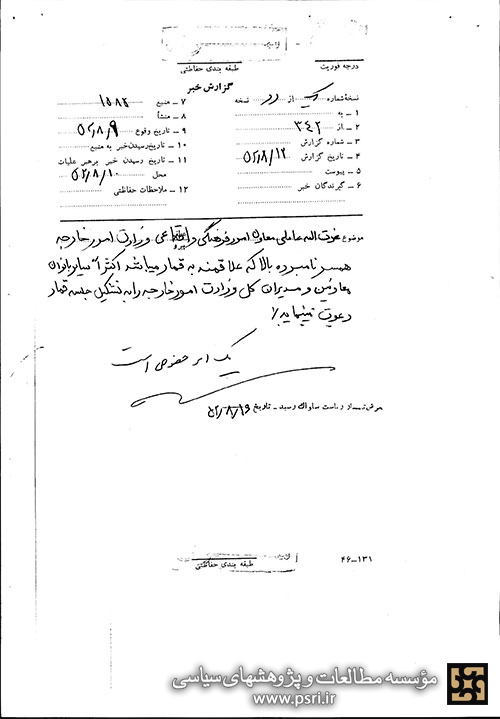 درجه فوریت
طبقه بندی حفاظتی
گزارش خبر
نسخه شماره یک از دو نسخه
۱ ـ به
۲ ـ از ۳۴۲
۳ ـ شماره گزارش
۴ ـ تاریخ گزارش ۵۲/۸/۱۲
۵ ـ پیوست
۶ ـ گیرندگان خبر
۷ ـ منبع ۱۵۸۲
۸ ـ منشأ
۹ ـ تاریخ وقوع ۵۲/۸/۹
۱۰ ـ تاریخ رسیدن خبر به منبع
۱۱ ـ تاریخ رسیدن خبر برهبر عملیات
محل ۵۲/۸/۱۰
۱۲ ـ ملاحظات حفاظتی
موضوع عزت اله عاملی معاون امور فرهنگی و اجتماعی وزارت امور خارجه
همسر نامبرده بالا که علاقمند به قمار میباشد اکثراً
معاونین و مدیران کل وزارت امور خارجه را به تشکیل جلسه قمار
دعوت مینماید
یک امر خصوصی است
بعرض تیمسار ریاست ساواک رسید ـ تاریخ ۵۲/۸/۱۶
۱۳۱ـ۴۶
طبقه بندی حفاظتی
مؤسسه مطالعات و پژوهشهای سیاسی
www.psri.ir